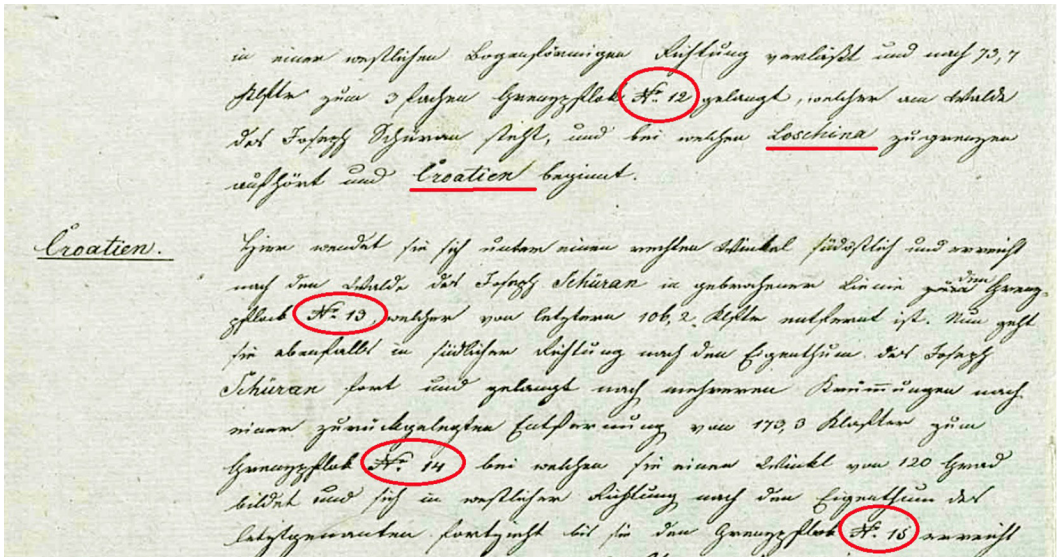 in einer westlichen Bogenförmigen Richtung verläßt und nach 73,7
Klftr zum 3fachen Grenzpflok No 12 gelangt, welcher am Walde
des Joseph Schuran steht, und bei welchen Loschina zu grenzen
aufhört und Croatien beginnt.
Croatien.
Hier wendet sie sich unter einen rechten Winkel südöstlich und erreicht
nach den Walde des Joseph Schuran in gebrochener Linie den Grenz-
pflock No 13, welcher von letztern 106,2 Klftr entfernt ist. Nun geht
sie ebenfalls in südlicher Richtung nach den Eigenthum des Joseph
Schuran fort und gelangt nach mehreren Krümungen nach
einer zurückgelegten Entfernung von 173,3 Klafter zum
Grenzpflok No 14 bei welchen sie einen Winkl von 120 Grad
bildet und sich in westlicher Richtung nach den Eigenthum des
letztgenanten fortzieht bis sie den Grenzpflok No 15 erreicht